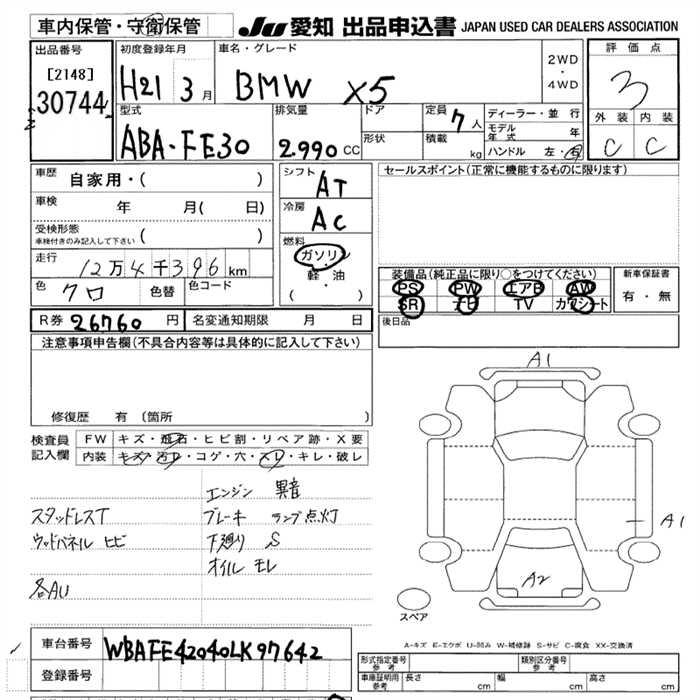 車内保管・守衛保管
JU 愛知 出品申込書 JAPAN USED CAR DEALERS ASSOCIATION
出品番号
[2148]
30744
初度登録年月
H21 3月
車名・グレード
BMW X5
2WD
・
4WD
評価点
3
外装 内装
C C
型式
ABA-FE30
排気量
2.990 CC
ドア
形状
定員 7人
積載 kg
ディーラー・並行
モデル年式 年
ハンドル 左・右
車歴 自家用・( )
車検 年 月( 日)
受検形態
車検付きのみ記入して下さい ( )
走行 12万4千396 km
色 クロ 色替 色コード
シフト
AT
冷房
AC
燃料
ガソリン
・
軽油
( )
セールスポイント(正常に機能するものに限ります)
装備品(純正品に限り○をつけてください)
PS PW エアB AW
SR ナビ TV カワシート
新車保証書
有・無
後日品
R券 26760 円 名変通知期限 月 日
注意事項申告欄(不具合内容等は具体的に記入して下さい)
修復歴 有 (箇所 )
検査員記入欄
FW キズ・飛石・ヒビ割・リペア跡・X要
内装 キズ・汚レ・コゲ・穴・スレ・キレ・破レ
エンジン 異音
スタッドレスT ブレーキ ランプ点灯
ウッドパネル ヒビ 下廻り S
オイル モレ
各AU
A1
A1
A2
スペア
A-キズ E-エクボ U-凹み W-補修跡 S-サビ C-腐食 XX-交換済
車台番号 WBAFE42040LK97642
登録番号
形式指定番号 参考 類別区分番号 参考
車庫証明用 参考 長さ cm 幅 cm 高さ cm